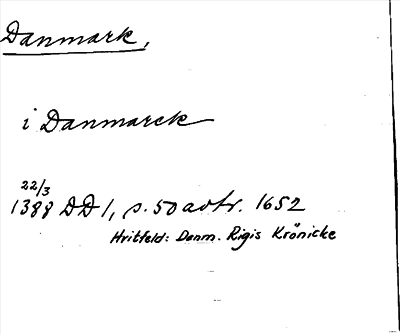 Danmark,
i Danmarck
22/3
1388 DD 1, s. 50 avtr. 1652
Hvitfeld: Danm. Rigis Krönicke